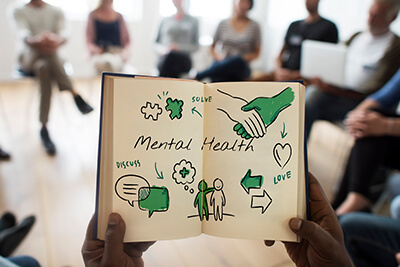 SOLVE
Mental Health
DISCUSS
LOVE